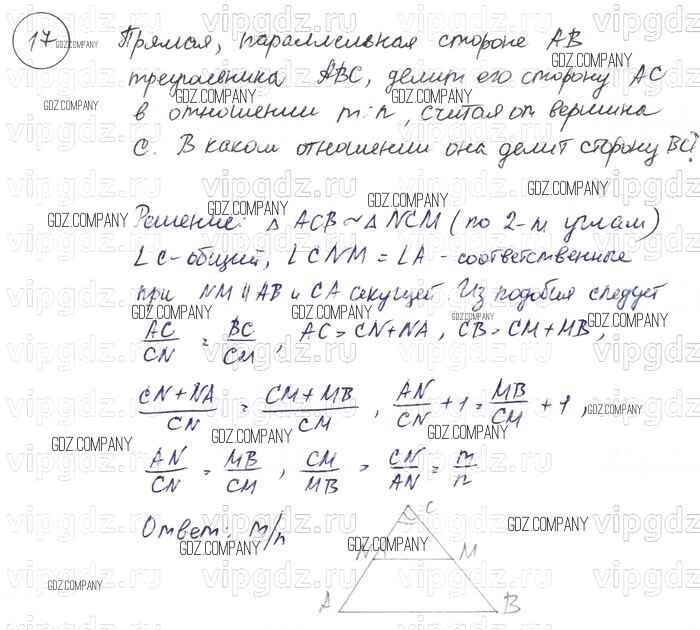 17 Прямая, параллельная стороне AB
треугольника ABC, делит его сторону AC
в отношении m:n, считая от вершина
C. В каком отношении она делит сторону BC?
Решение: △ ACB ~ △ NCM (по 2-м углам)
∠C-общий, ∠CNM = ∠A - соответственные
при NM || AB и CA секущей. Из подобия следует
AC/CN = BC/CM, AC = CN+NA, CB = CM+MB,
(CN+NA)/CN = (CM+MB)/CM, AN/CN + 1 = MB/CM + 1,
AN/CN = MB/CM, CM/MB = CN/AN = m/n
Ответ: m/n
C
N M
A B
GDZ.COMPANY
vipgdz.ru